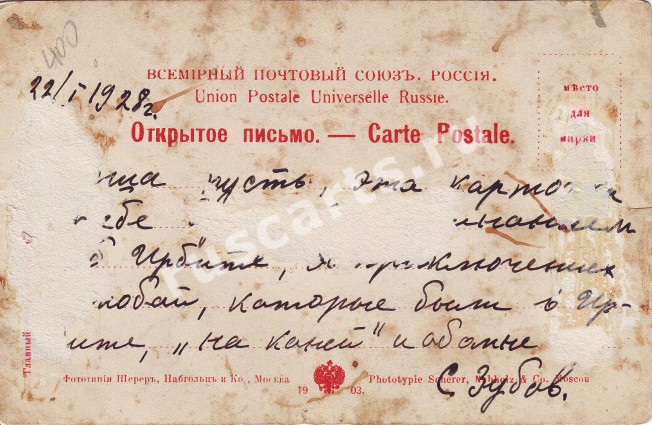 400
22/I 1928 г.
ВСЕМІРНЫЙ ПОЧТОВЫЙ СОЮЗЪ. РОССІЯ.
Union Postale Universelle Russie.
Открытое письмо. — Carte Postale.
мѣсто
для
марки
пусть, эта карточка
ебе
Ирбите, и приключениях
тобой, которые были в Ир-
ите, „на коней" и
С. Зубов.
Главный
Фототипія Шереръ, Набгольцъ и Ко., Москва
Phototypie Scherer, Nabholz & Co. Moscou
19 03.
ruscarts.ru